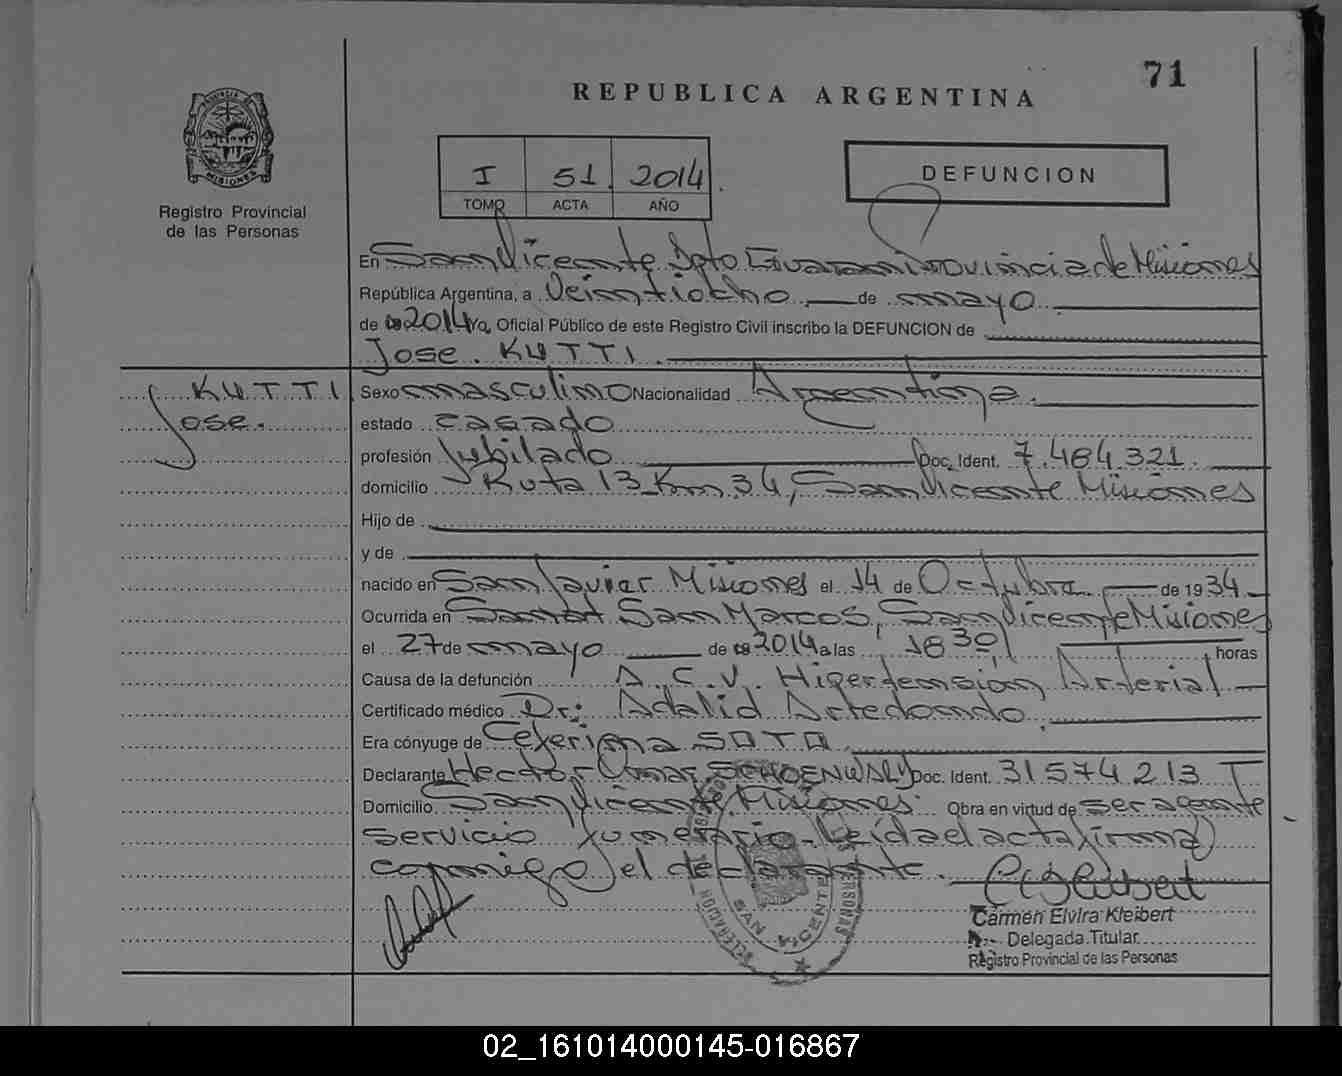 71
REPUBLICA ARGENTINA
PROVINCIA DE
MISIONES
Registro Provincial
de las Personas
I 51 2014
TOMO ACTA AÑO
DEFUNCION
En San Vicente Dpto Guaraní Provincia de Misiones
República Argentina, a Veintiocho de mayo
de 2014 Yo, Oficial Público de este Registro Civil inscribo la DEFUNCION de
Jose. KUTTI.
KUTTI
Jose.
Sexo masculino Nacionalidad Argentina.
estado casado
profesión Jubilado Doc. Ident. 7.484.321.
domicilio Ruta 13 Km 34, San Vicente Misiones
Hijo de
y de
nacido en San Javier Misiones el 14 de Octubre de 1934.
Ocurrida en San Marcos, San Vicente Misiones
el 27 de mayo de 2014 a las 18 30 horas
Causa de la defunción A.C.V. Hipertension Arterial
Certificado médico Dr: Adalid
Era cónyuge de Ceferina SOTO
Declarante Hector Omar Doc. Ident. 31574213
Domicilio San Vicente Misiones. Obra en virtud de ser agente
servicio funerario. Leída el acta firma
conmigo el declarante.
SAN VICENTE
PERSONAS
Carmen Elvira Kleibert
Delegada Titular
Registro Provincial de las Personas
02_161014000145-016867